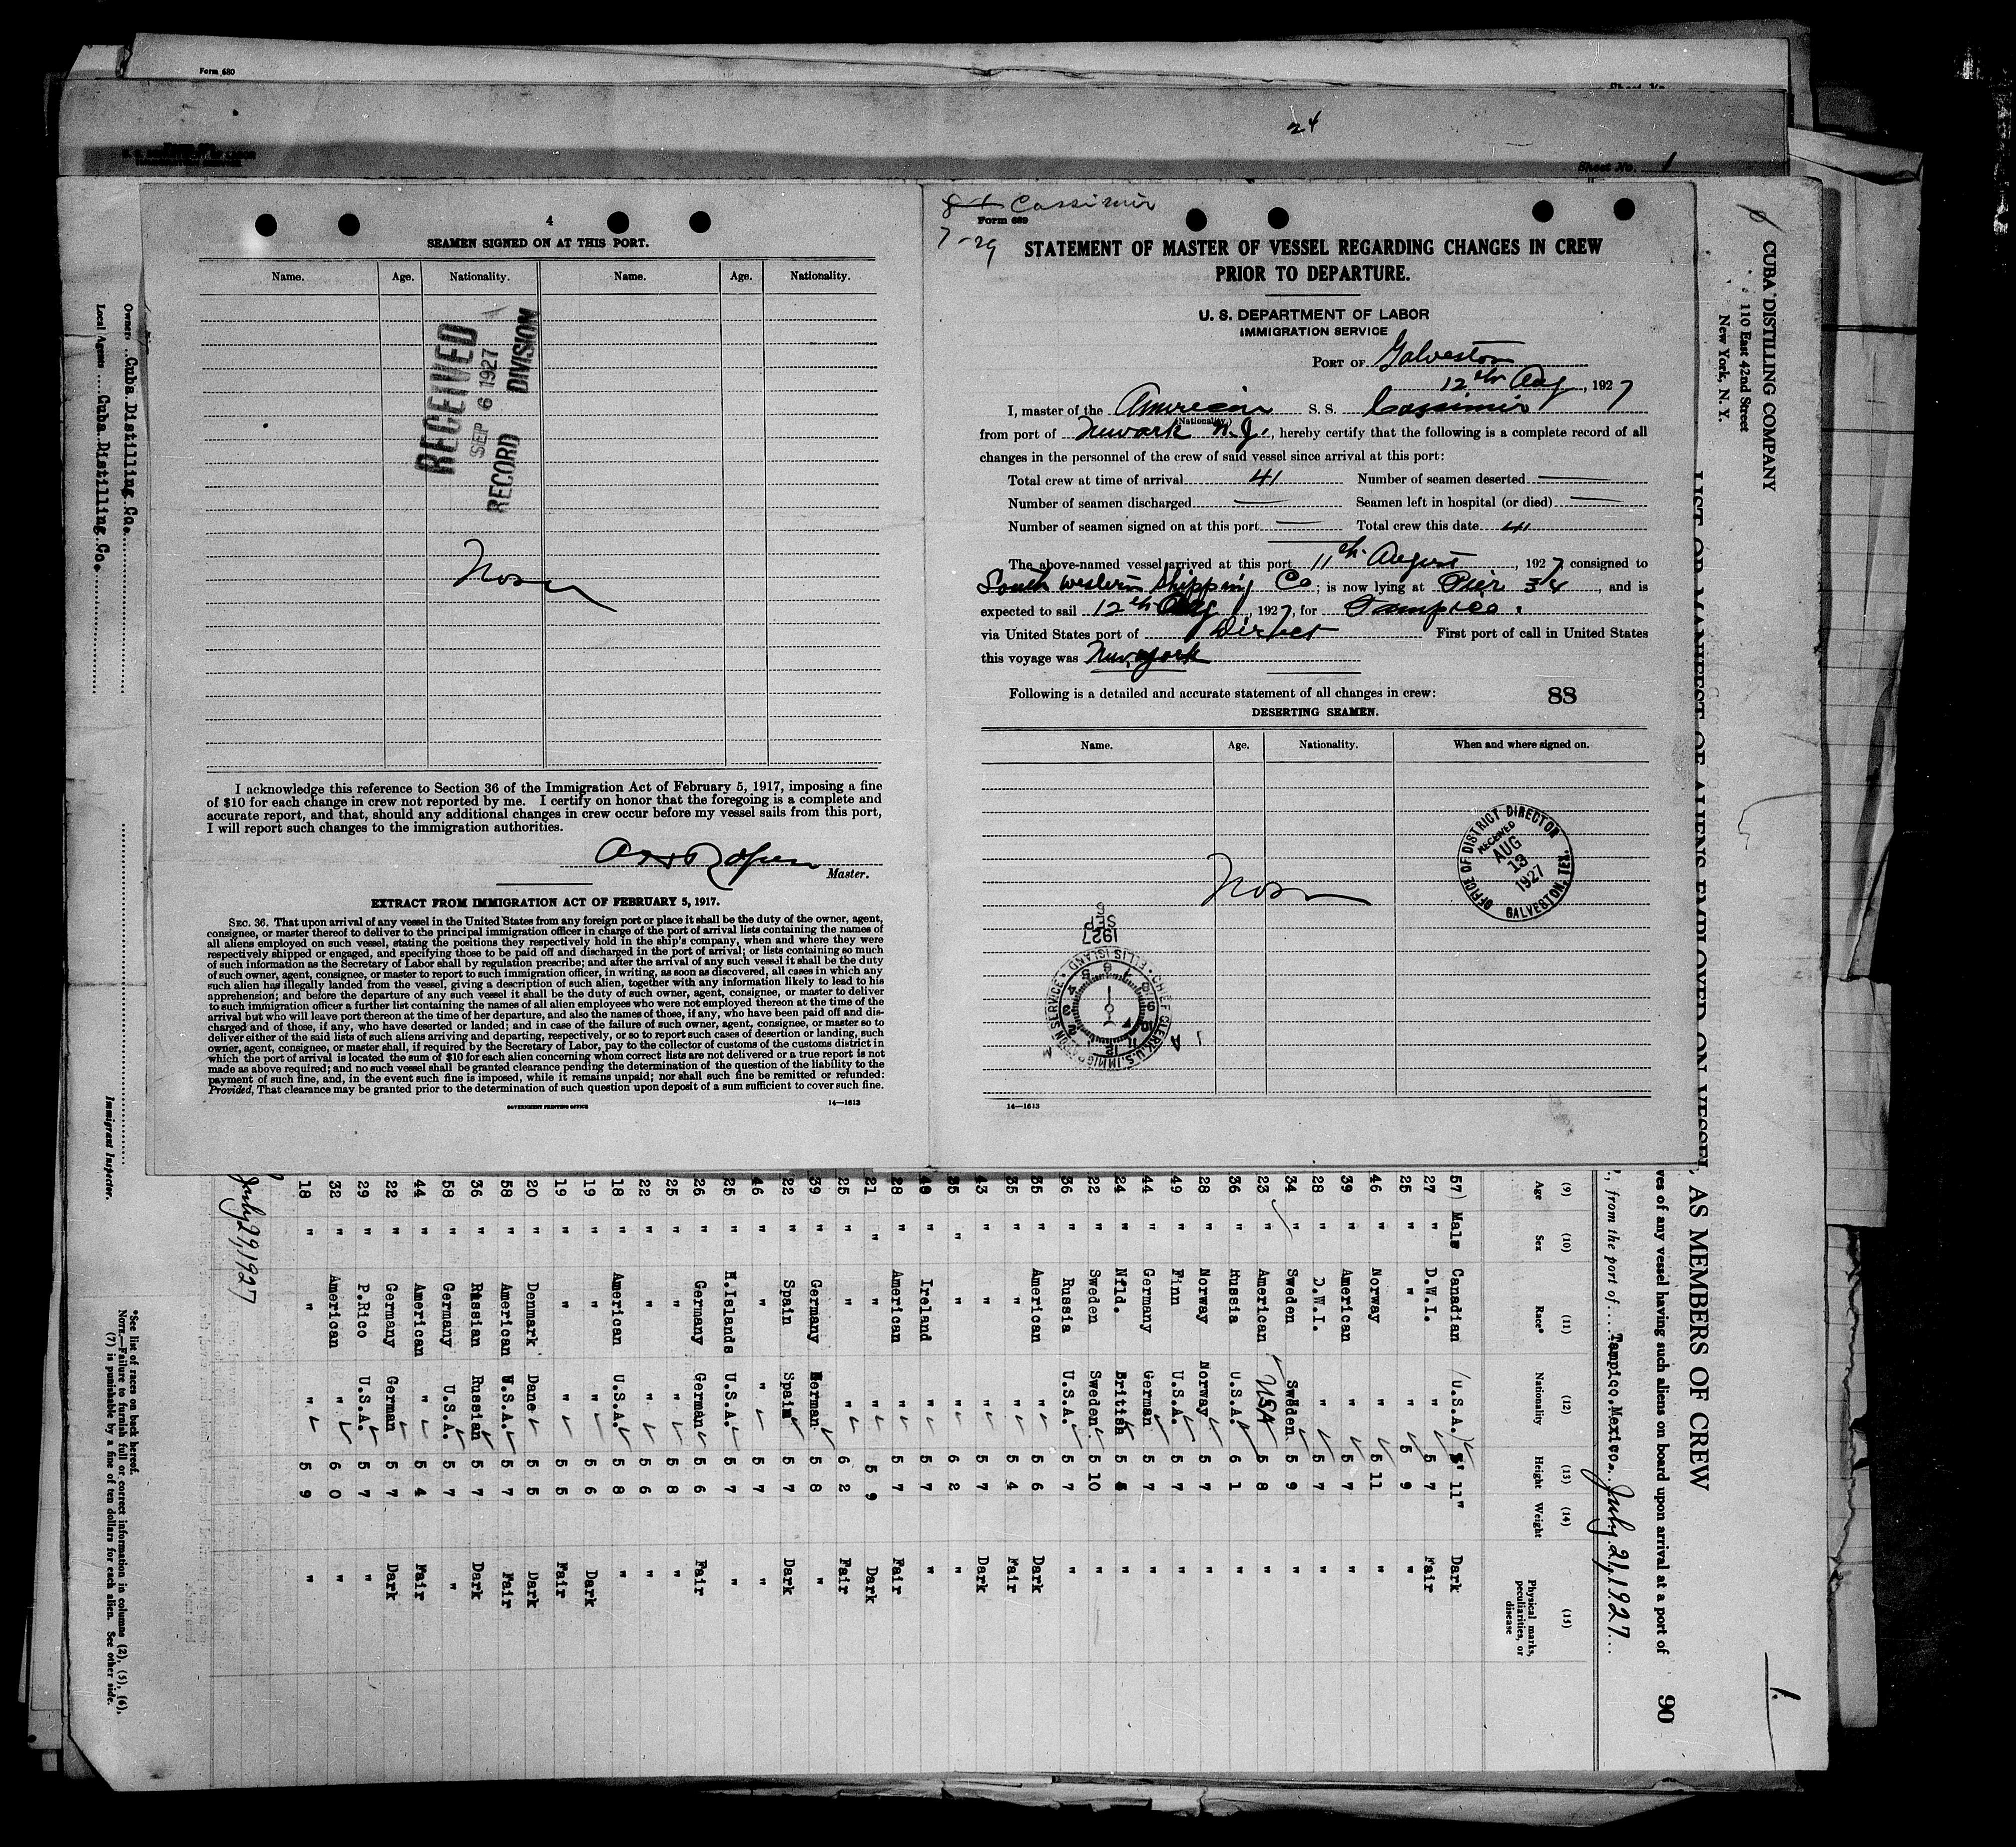 Form 680
Sheet No.
24
Sheet No. 1
4
SEAMEN SIGNED ON AT THIS PORT.
Name. Age. Nationality. Name. Age. Nationality.
RECEIVED
SEP 6 1927
RECORD DIVISION
None
I acknowledge this reference to Section 36 of the Immigration Act of February 5, 1917, imposing a fine
of $10 for each change in crew not reported by me. I certify on honor that the foregoing is a complete and
accurate report, and that, should any additional changes in crew occur before my vessel sails from this port,
I will report such changes to the immigration authorities.
Master.
EXTRACT FROM IMMIGRATION ACT OF FEBRUARY 5, 1917.
SEC. 36. That upon arrival of any vessel in the United States from any foreign port or place it shall be the duty of the owner, agent,
consignee, or master thereof to deliver to the principal immigration officer in charge of the port of arrival lists containing the names of
all aliens employed on such vessel, stating the positions they respectively hold in the ship's company, when and where they were
respectively shipped or engaged, and specifying those to be paid off and discharged in the port of arrival; or lists containing so much
of such information as the Secretary of Labor shall by regulation prescribe; and after the arrival of any such vessel it shall be the duty
of such owner, agent, consignee, or master to report to such immigration officer, in writing, as soon as discovered, all cases in which any
such alien has illegally landed from the vessel, giving a description of such alien, together with any information likely to lead to his
apprehension; and before the departure of any such vessel it shall be the duty of such owner, agent, consignee, or master to deliver
to such immigration officer a further list containing the names of all alien employees who were not employed thereon at the time of the
arrival but who will leave port thereon at the time of her departure, and also the names of those, if any, who have been paid off and dis-
charged and of those, if any, who have deserted or landed; and in case of the failure of such owner, agent, consignee, or master so to
deliver either of the said lists of such aliens arriving and departing, respectively, or so to report such cases of desertion or landing, such
owner, agent, consignee, or master shall, if required by the Secretary of Labor, pay to the collector of customs of the customs district in
which the port of arrival is located the sum of $10 for each alien concerning whom correct lists are not delivered or a true report is not
made as above required; and no such vessel shall be granted clearance pending the determination of the question of the liability to the
payment of such fine, and, in the event such fine is imposed, while it remains unpaid; nor shall such fine be remitted or refunded:
Provided, That clearance may be granted prior to the determination of such question upon deposit of a sum sufficient to cover such fine.
GOVERNMENT PRINTING OFFICE 14—1613
Cassimir
Form 689
7-29
STATEMENT OF MASTER OF VESSEL REGARDING CHANGES IN CREW
PRIOR TO DEPARTURE.
U. S. DEPARTMENT OF LABOR
IMMIGRATION SERVICE
PORT OF Galveston
12th Aug, 1927
I, master of the American S. S. Cassimir
(Nationality.)
from port of Newark N.J., hereby certify that the following is a complete record of all
changes in the personnel of the crew of said vessel since arrival at this port:
Total crew at time of arrival 41 Number of seamen deserted —
Number of seamen discharged — Seamen left in hospital (or died) —
Number of seamen signed on at this port — Total crew this date 41
The above-named vessel arrived at this port 11th August, 1927, consigned to
South Western Shipping Co; is now lying at Pier 34, and is
expected to sail 12th Aug, 1927, for Tampico.
via United States port of Direct First port of call in United States
this voyage was New York
Following is a detailed and accurate statement of all changes in crew: 88
DESERTING SEAMEN.
Name. Age. Nationality. When and where signed on.
OFFICE OF DISTRICT DIRECTOR
RECEIVED
AUG
13
1927
GALVESTON, TEX.
None
SEP
1927
CHIEF CLERK, U.S. IMMIGRATION SERVICE
ELLIS ISLAND
14—1613
CUBA DISTILLING COMPANY
110 East 42nd Street
New York, N. Y.
LIST OR MANIFEST OF ALIENS EMPLOYED ON VESSEL AS MEMBERS OF CREW
ves of any vessel having such aliens on board upon arrival at a port of
90
1.
, from the port of Tampico.Mexico. July.21,1927
(9) (10) (11) (12) (13) (14) (15)
Age Sex Race* Nationality Height Weight Physical marks, peculiarities, or disease
57 Male Canadian U.S.A. 5' 11" Dark
27 " D.W.I. " 5 7 Fair
25 " " " 5 9 "
46 " Norway " 5 11 "
39 " American " 5 7 "
28 " D.W.I. " 5 7 "
34 " Sweden Sweden 5 9 "
23 " American USA 5 8 "
36 " Russia U.S.A. 6 1 "
28 " Norway Norway 5 7 "
49 " Finn U.S.A. 5 7 "
44 " Germany German 5 7 "
24 " Nfld. British 5 "
22 " Sweden Sweden 5 10 "
36 " Russia U.S.A. 5 7 "
35 " American " 5 6 Dark
35 " " " 5 4 Fair
43 " " " 5 7 Dark
35 " " " 6 2 "
" Ireland " 5 7 "
28 " American " 5 7 Fair
21 " " " 5 9 Dark
25 " " " 6 2 Fair
39 " Germany German 5 8 "
22 " Spain Spain 5 7 Dark
46 " " " 5 7 "
25 " H.Islands U.S.A. 5 7 "
26 " Germany German 5 6 Fair
25 " " " 5 8 "
22 " " " 5 6 "
18 " American U.S.A. 5 8 "
19 " " " 5 6 Dark
19 " " " 5 5 Fair
20 " Denmark Dane 5 5 Dark
58 " American U.S.A. 5 7 Fair
36 " Russian Russian 5 7 Dark
58 " Germany U.S.A. 5 7 "
44 " American " 5 4 Fair
22 " Germany German 5 7 Dark
29 " P.Rico U.S.A. 5 7 "
32 " American " 6 0 "
18 " " " 5 9 "
July 29,1927
*See list of races on back hereof.
NOTE.—Failure to furnish full or correct information in columns (2), (5), (6),
(7) is punishable by a fine of ten dollars for each alien. See other side.
Owner Cuba Distilling Co.
Local Agents Cuba Distilling Co.
Immigrant Inspector.